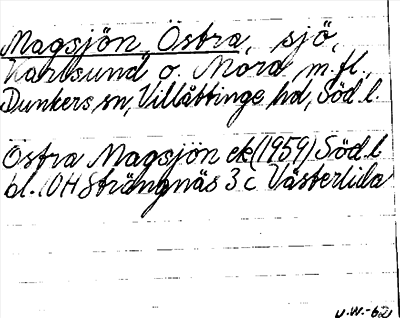 Magsjön, Östra, sjö,
Karlsund o. Mora m.fl.,
Dunkers sn, Villåttinge hd, Söd. l.
Östra Magsjön ek (1959) Söd. l
bl. 10H Strängnäs 3 c Västerlida
U.W.-62